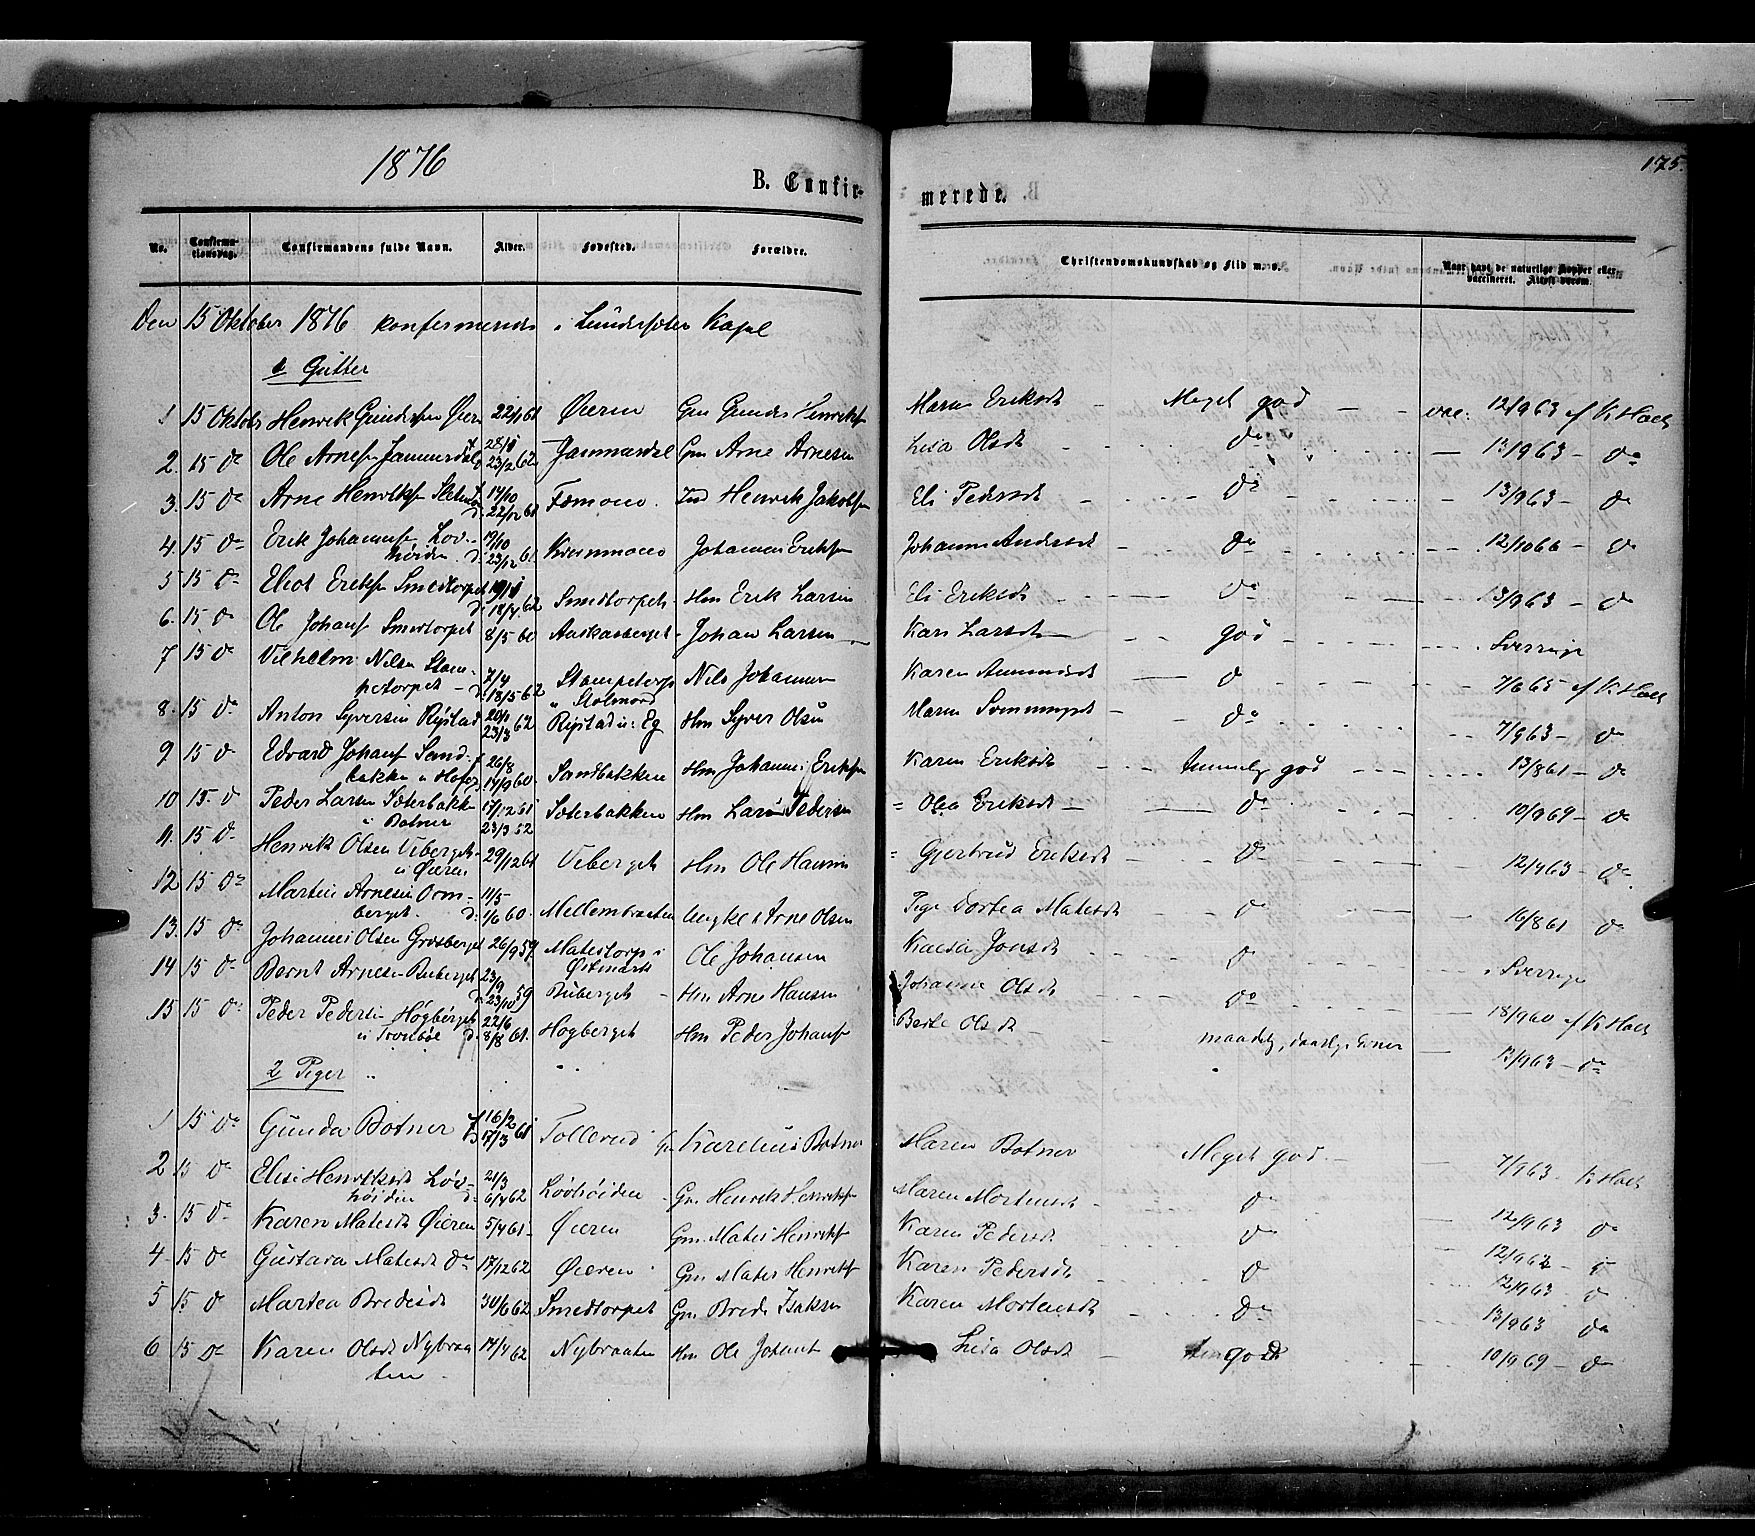 1876
175.
B. Confirmerede.
No. Confirmationsdag. Confirmandens fulde Navn. Alder. Fødested. Forældre. Christendomskundskab og Flid m. v. Naar havt de naturlige Kopper eller vaccineret. Attest derom.
Den 15 Oktober 1876 konfermerede i Kapel
1 Gutter
1 15 Oktober Henrik Gundersen Øieren 22/1 61 Øieren Gm Gunder Henriks Maren Eriksdt Meget god vac. 12/9 63 af K Hoel
2. 15 do Ole Arnes 28/1 23/2 62 Gm Arne Arnesen Lisa Olsdt do 12/9 63 do
3. 15 do Arne Henriks 14/10 d. 22/12 61 Femoen Ind Henrik Jakobs Eli Pedersdt do 13/9 63 do
4. 15 do Erik Johannes Løv-
høiden d. 23/12 61 Johannes Eriks Johanne Andersdt do 12/10 66 do
5 15 do Eliot Eriks Smedtorpet d. 18/4 62 Smedtorpet Hm Erik Larsen Eli Eriksdt do 13/9 63 do
6. 15 do Ole Johans Smedtorpet 8/5 60 Aaskasberget Johan Larsen Kari Larsdt god Sverrige
7 15 do Vilhelm Nilsen Stam-
petorpet 7/4 d. 18/5 62 Stampetorp Nils Johannes Karen Amundsdt do 7/6 65 af K Hoel
8. 15 do Anton Syversen Rystad 20/1 23/3 62 Rystad i Eg Hm Syver Olsen Maren do 7/9 63 do
9 15 do Edvard Johans Sand-
bakken 26/8 14/9 60 Sandbakken Hm Johannes Eriksen Karen Eriksdt temmelig god 13/8 61 do
10 15. do Peder Larsen Sæterbakken
i Botner 17/12 61 23/3 52 Sæterbakken Hm Lars Pedersen Olea Eriksdt do 10/9 69 do
11. 15 do Henrik Olsen Viberget
i Øieren 29/12 61 Viberget Hm Ole Hansen Gjertrud Eriksdt do 12/9 63 do
12 15 do Martin Arnesen Orm-
berget. 11/5 d. 1/6 60 Mellembraaten Ungkarl Arne Olsen Pige Dortea Matesdt do 16/8 61 do
13. 15 do Johannes Olsen Grasberget 26/9 59 Matestorp i
Østmark Ole Johansen Kaisa Jonsdt do Sverrige
14 15 do Bernt Arnesen Buberget 23/9 d. 23/10 59 Buberget Hm Arne Hansen Johanne Olsdt do 18/9 60 af K Hoel
15 15 do Peder Pedersen Høgberget 22/6 d. 8/8 61. Høgberget Hm Peder Johans Berte Olsdt maadelig, daarlige Evner 13/9 63 do
2 Piger
1 15 do Gunda Botner 16/2 17/3 61 Tollerud Gm Karelius Botner Maren Botner Meget god 7/9 63 K Hoel
2 15 do Elise Henriksdt Løv-
høiden 21/3 d. 6/4 62 Løvhøiden Gm Henrik Henriks Maren Mortensdt do 12/9 63 do
3. 15 do Karen Matesdt Øieren 5/4 61 Øieren Gm Mates Henriks Karen Pedersdt do 12/9 62 do
4. 15 do Gustava Matesdt do 17/12 62 Øieren Gm Mates Henriks Karen Pedersdt do 12/9 63 do
5 15 do Martea Bredesdt 30/6 62 Smedtorpet Gm Brede Isaksen Karen Mortensdt do 13/9 63 do
6 15 do Karen Olsdt Nybraa-
ten 14/4 62 Nybraaten Hm Ole Johans Lisa Olsdt god 10/9 69 do